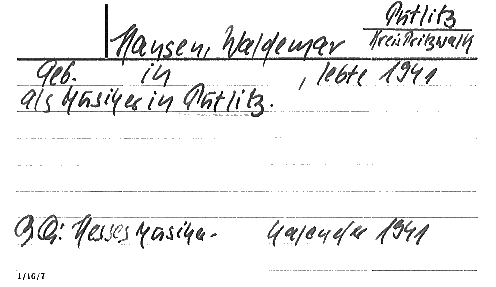 Putlitz
Hansen, Waldemar Kreis Pritzwalk
Geb. in , lebte 1941
als Musiker in Putlitz.
Qu: Hesses Musiker-Kalender 1941
1/16/7